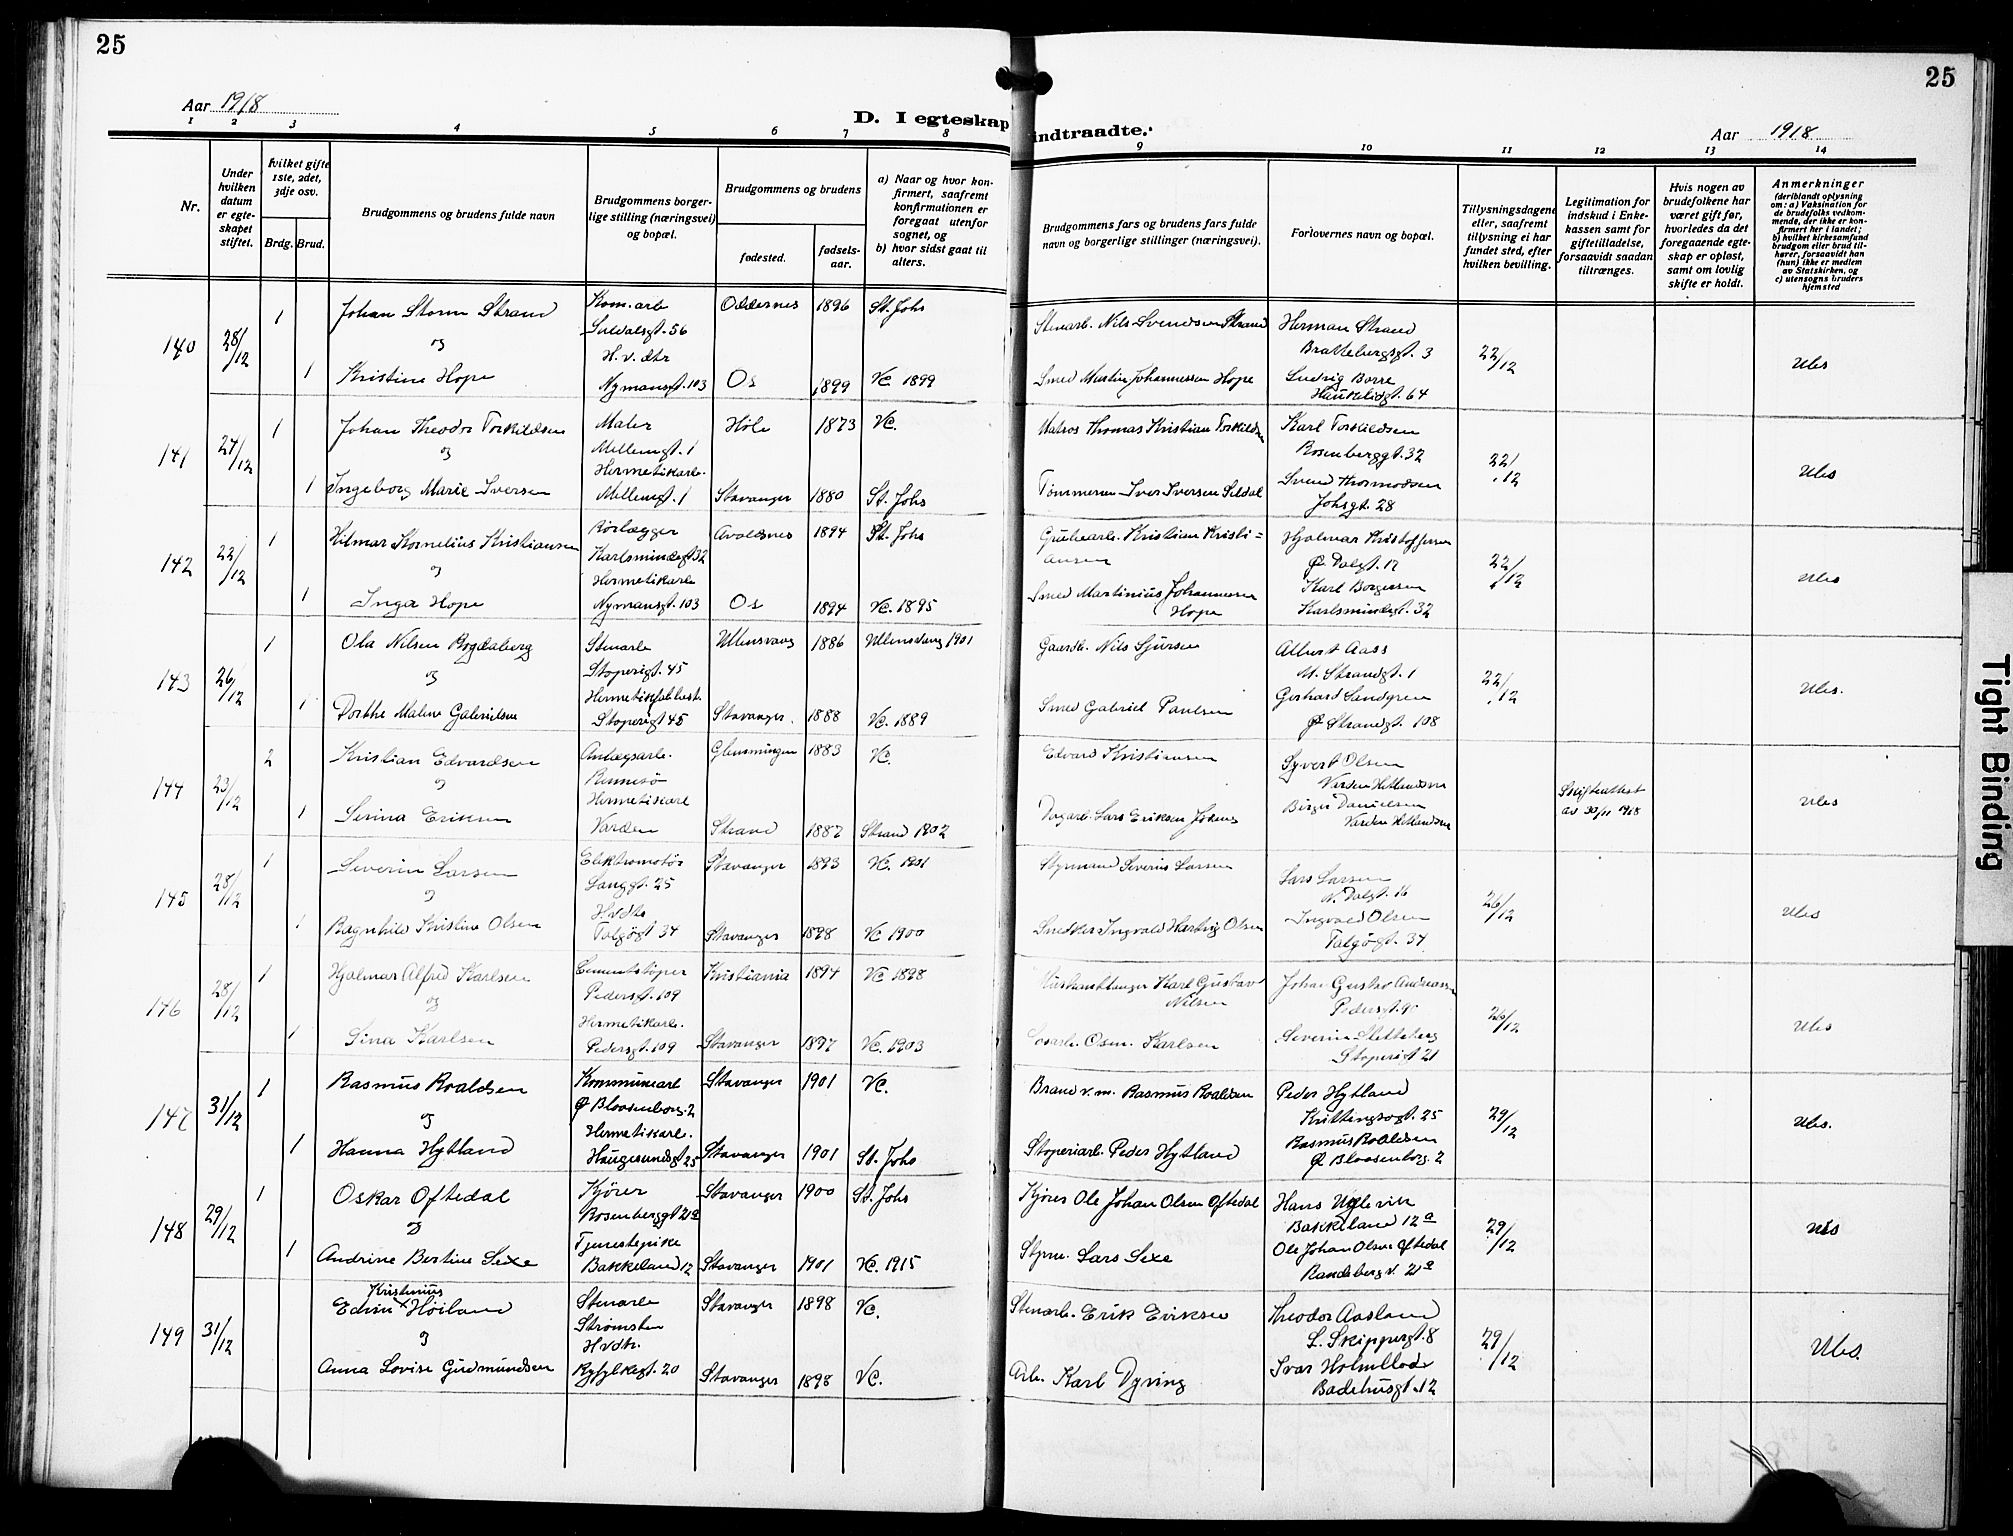 25
25
Aar 1918
D. I egteskap indtraadte.
Aar 1918
1 2 3 4 5 6 7 8 9 10 11 12 13 14
Nr.
Under hvilken datum er egteskapet stiftet.
hvilket gifte 1ste, 2det, 3dje osv.
Brdg. Brud.
Brudgommens og brudens fulde navn
Brudgommens borgerlige stilling (næringsvei) og bopæl.
Brudgommens og brudens
fødested. fødselsaar.
a) Naar og hvor konfirmert, saafremt konfirmationen er foregaat utenfor sognet, og
b) hvor sidst gaat til alters.
Brudgommens fars og brudens fars fulde navn og borgerlige stillinger (næringsvei).
Forlovernes navn og bopæl.
Tillysningsdagene eller, saafremt tillysning ei har fundet sted, efter hvilken bevilling.
Legitimation for indskud i Enkekassen samt for giftetilladelse, forsaavidt saadan tiltrænges.
Hvis nogen av brudefolkene har været gift før, hvorledes da det foregaaende egteskap er opløst, samt om lovlig skifte er holdt.
Anmerkninger
(deriblandt oplysning om: a) Vaksination for de brudefolks vedkommende, der ikke er konfirmert her i landet;
b) hvilket kirkesamfund brudgom eller brud tilhører, forsaavidt han (hun) ikke er medlem av Statskirken, og
c) utensogns bruders hjemsted
140 28/12 1 Johan Storm Strand Kom.arb Suldalsgt. 56 Oddernes 1896 St. Johs Stenarb. Nils Svendsen Strand Herman Strand Brattebergsgt. 3 22/12 Ubs
og
1 Kristine Hope H.v. dtr Nymansgt. 103 Os 1899 Vc. 1899 Smed Martin Johannessen Hope Ludvig Borre Haukelidgt. 64
141 27/12 1 Johan Theodor Torkildsen Maler Mellemgt. 1 Høle 1873 Vc. Matros Thomas Kristian Torkildsen Karl Torkildsen Rosenberggt. 32 22/12 Ubs
og
1 Ingeborg Marie Iversen Hermetikarb. Mellemgt. 1 Stavanger 1880 St. Johs Tømmermn Iver Iversen Seldal Svend Thormodsen Johsgt. 28
142 22/12 1 Hilmar Kornelius Kristiansen Rørlægger Karlsmindegt 32 Avaldsnes 1894 St. Johs Grubearb. Kristian Kristiansen Hjalmar Kristoffersen Ø Dalgt. 17 22/12 Ubs
og
1 Inga Hope Hermetikarb Nymansgt. 103 Os 1894 Vc. 1895 Smed Martinius Johannesen Hope Karl Borgersen Karlsmindegt. 32
143 26/12 1 Ola Nilsen Bogdaberg Stenarb Støperigt. 45 Ullensvang 1886 Ullensvang 1901 Gaardb. Nils Sjursen Albert Aass N. Strandgt. 1 22/12 Ubs.
og
1 Dorthe Malene Gabrielsen Støperigt 45 Stavanger. 1888 Vc. 1889 Smed Gabriel Paulsen Gerhard Sandgren Ø Strandgt. 108
144 23/12 2 Kristian Edvardsen Anlægsarb. Rennesö 1883 Vc. Edvard Kristiansen Syvert Olsen Varden Hetlandsm Skifteattest av 30/11 1918 Ubs
og
1 Serina Eriksen Hermetikarb Varden Strand 1887 Strand 1902 Lars Eriksen Birger Danielsen Varden Hetlandsm
145 28/12 1 Severin Larsen Elektromotør Langgt. 25 Stavanger 1893 Vc. 1901 Styrmand Severin Larsen Lars Larsen V. Dalgt. 16 26/12 Ubs
og
1 Ragnhild Kristine Olsen Hvdtr Talgøgt. 34 Stavanger 1898 Vc 1900 Snedker Ingvald Hartvig Olsen Ingvald Olsen Talgøgt. 34
146 28/12 1 Hjalmar Alfred Karlsen Cementstøper Pedersgt. 109 Kristiania 1894 Vc 1898 Karl Gustav Nilsen Johan Gustav Andreassen Pedersgt. 90 26/12 Ubs
og
1 Sina Karlsen Hermetikarb. Pedersgt. 109 Stavanger 1897 Vc. 1903 Osm. Karlsen Severin Stetteberg Støperigt 21
147 31/12 1 Rasmus Roaldsen Kommunearb Ø Blaasenborg. 2 Stavanger 1901 Vc. Brand v.m. Rasmus Roaldsen Peder Hytland 25 29/12 Ubs.
og
1 Hanna Hytland Hermetikarb. Haugesundsgt 25 Stavanger 1901 St. Johs Støperiarb. Peder Hytland Rasmus Roaldsen Ø Blaasenborg. 2
148 29/12 1 Oskar Oftedal Kjører Rosenberggt 21a Stavanger 1900 St. Johs Kjører Ole Johan Olsen Oftedal Hans Uglevik Bakkeland 12a 29/12 Ubs
og
1 Andrine Bertine Sexe Tjenestepike Bakkeland 12 Stavanger 1901 Vc. 1915 Styrm. Lars Sexe Ole Johan Olsen Oftedal Randabergv. 21a
149 31/12 Edvin Kristinius Høiland Stenarb Strømsten Stavanger 1898 Vc. Stenarb. Erik Eriksen Theodor Aasland L. Skippergt. 8 29/12 Ubs.
og
Anna Lovise Gudmundsen Hvdtr. Ryfylkegt. 20 Stavanger 1898 Vc. Arb. Karl Dyring Ivar Holmllode Badehusgt. 12
Tight Binding